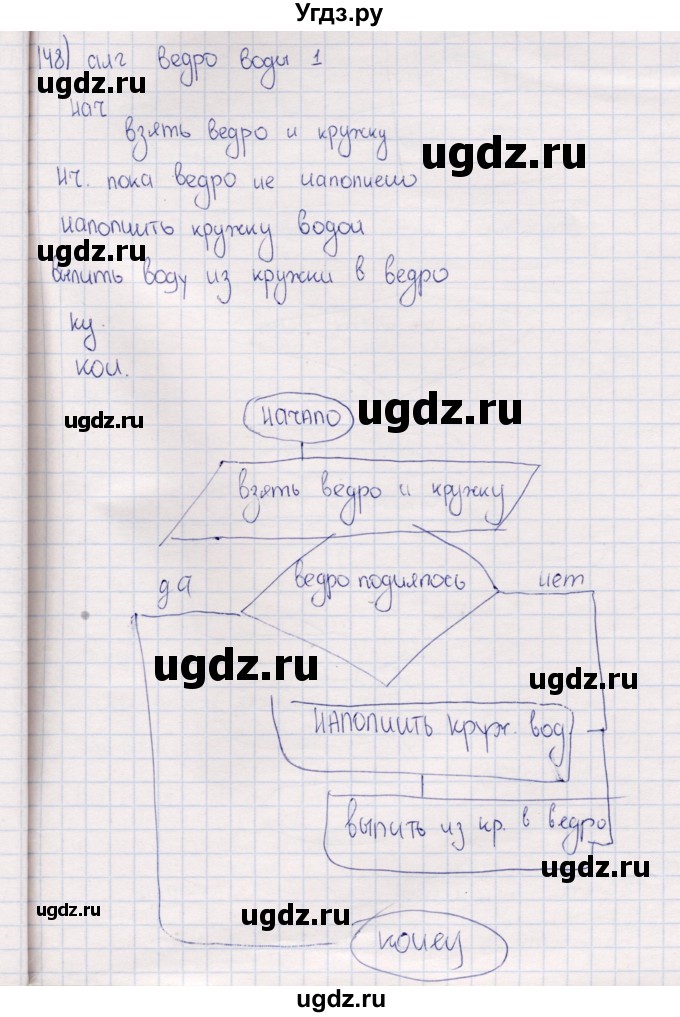 Угдз.ру
148) алг ведро воды 1
ugdz.ru
нач
взять ведро и кружку
ugdz.ru
нч. пока ведро не наполнено
наполнить кружку водой
ugdz.ru
вылить воду из кружки в ведро
кц.
кон.
ugdz.ru
начало
ugdz.ru
взять ведро и кружку
да
ведро поднялось
нет
ugdz.ru
ugdz.ru
наполнить круж. вод
вылить из кр. в ведро
ugdz.ru
ugdz.ru
ugdz.ru
конец
ugdz.ru